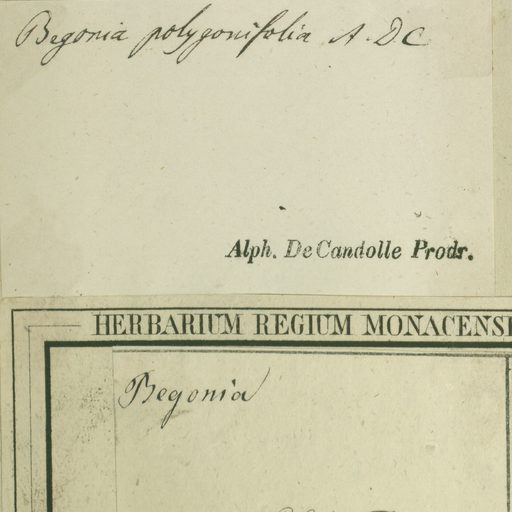 Begonia polygonifolia A. DC
Alph. DeCandolle Prodr.
HERBARIUM REGIUM MONACENS
Begonia